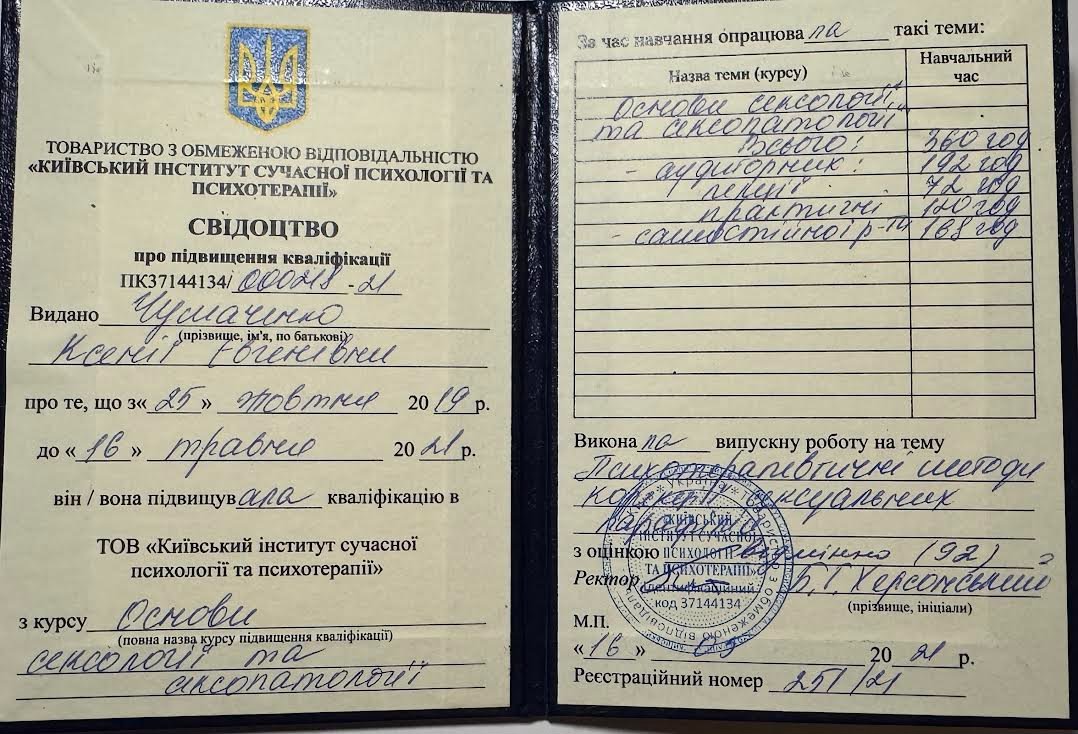 ТОВАРИСТВО З ОБМЕЖЕНОЮ ВІДПОВІДАЛЬНІСТЮ
«КИЇВСЬКИЙ ІНСТИТУТ СУЧАСНОЇ ПСИХОЛОГІЇ ТА
ПСИХОТЕРАПІЇ»
СВІДОЦТВО
про підвищення кваліфікації
ПК37144134/ 000218 -21
Видано Чумаченко
(прізвище, ім'я, по батькові)
Ксенії Євгенівни
про те, що з« 25 » жовтня 20 19 р.
до « 16 » травня 20 21 р.
він / вона підвищув ала кваліфікацію в
ТОВ «Київський інститут сучасної
психології та психотерапії»
з курсу Основи
(повна назва курсу підвищення кваліфікації)
сексології та
сексопатології
За час навчання опрацюва ла такі теми:
Назва теми (курсу) Навчальний
час
Основи сексології
та сексопатології
Всього: 360 год
- аудиторних: 192 год
лекції 72 год
практичні 120 год
- самостійної р-ти 168 год
Викона ла випускну роботу на тему
Психотерапевтичні методи
корекції сексуальних
з оцінкою відмінно (92)
Ректор Б.Г. Херсонський
(прізвище, ініціали)
М.П.
« 16 » 05 20 21 р.
Реєстраційний номер 251/21
Україна * Товариство з обмеженою відповідальністю
«КИЇВСЬКИЙ
ІНСТИТУТ СУЧАСНОЇ
ПСИХОЛОГІЇ
ТА ПСИХОТЕРАПІЇ»
Ідентифікаційний
код 37144134